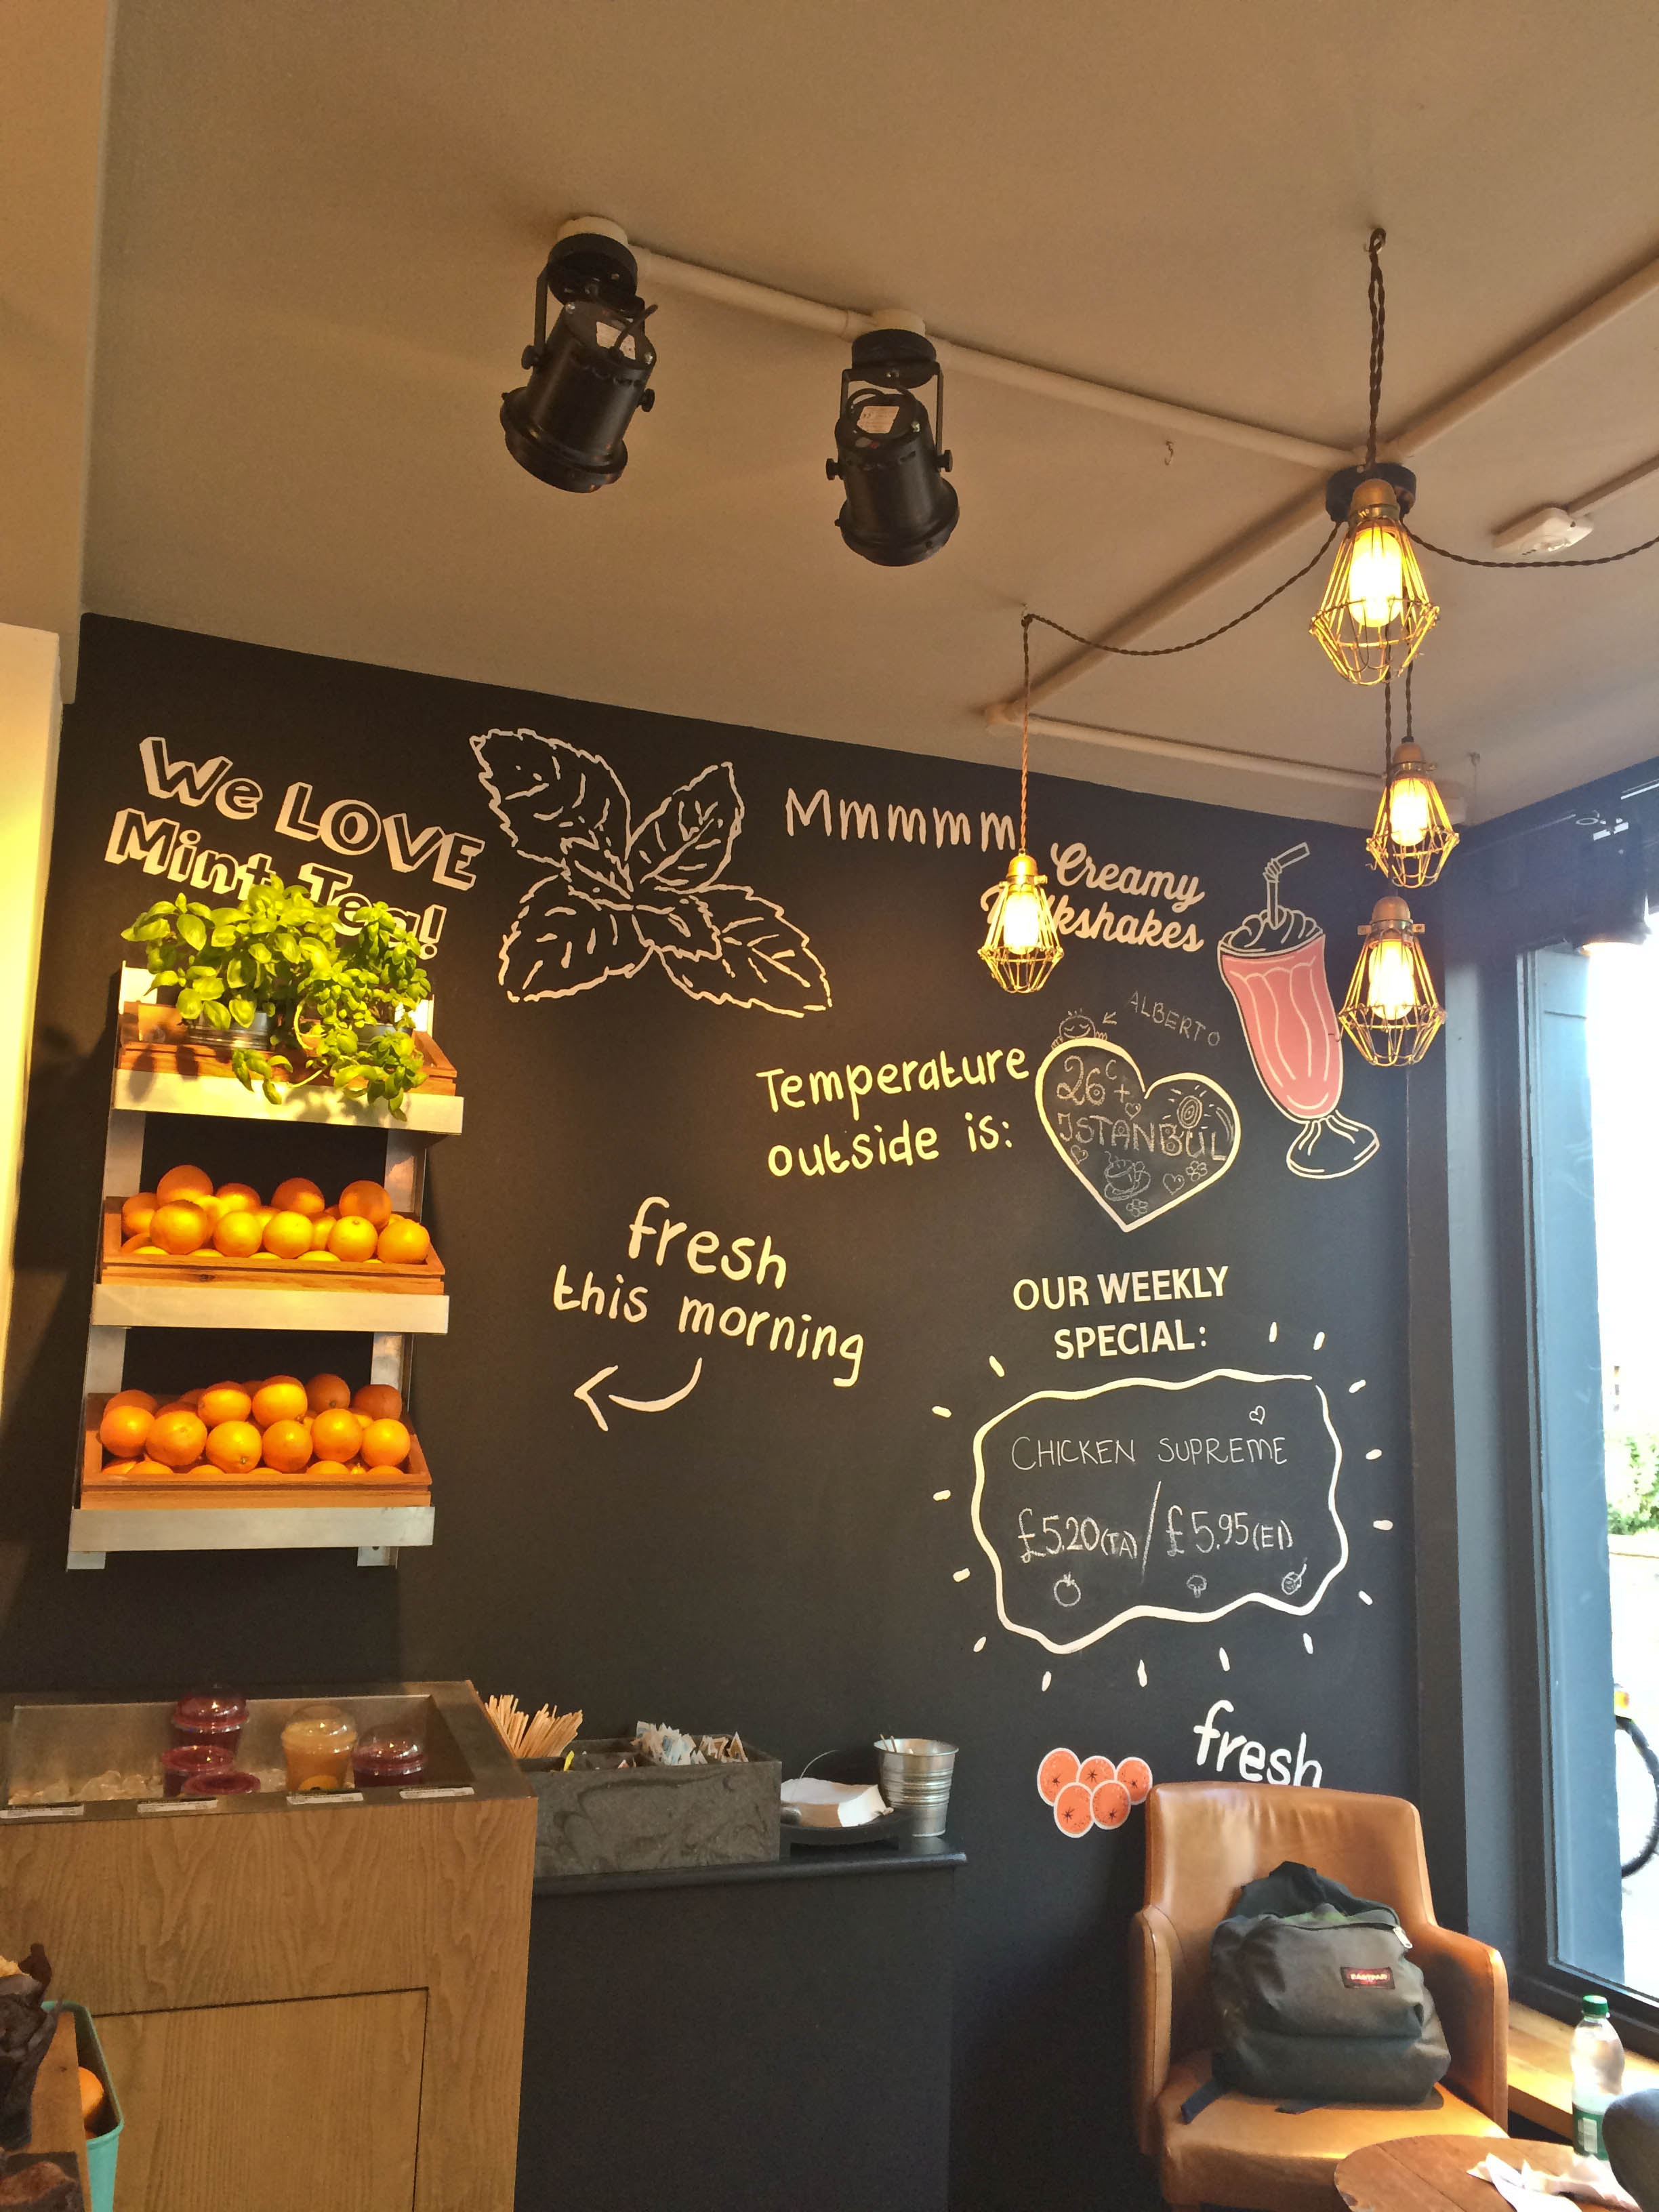 We LOVE
Mint Tea!
Mmmmmm
Creamy
Milkshakes
ALBERTO
Temperature
outside is:
26°C+
ISTANBUL
fresh
this morning
OUR WEEKLY
SPECIAL:
CHICKEN SUPREME
£5.20(TA)/£5.95(EI)
fresh
EASTPAK